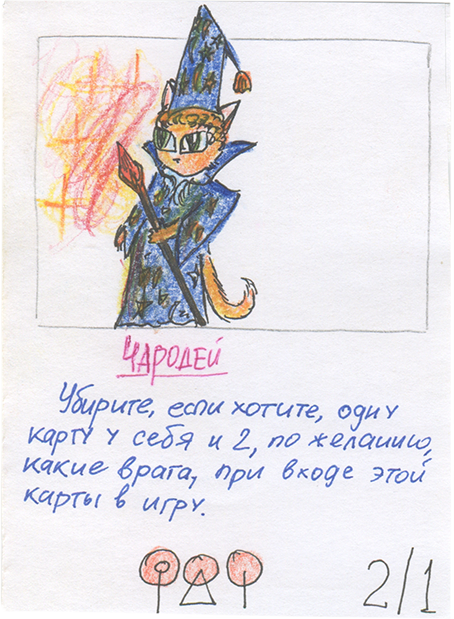 ЧАРОДЕЙ
Убирите, если хотите, одну
карту у себя и 2, по желанию,
какие врага, при входе этой
карты в игру.
2/1